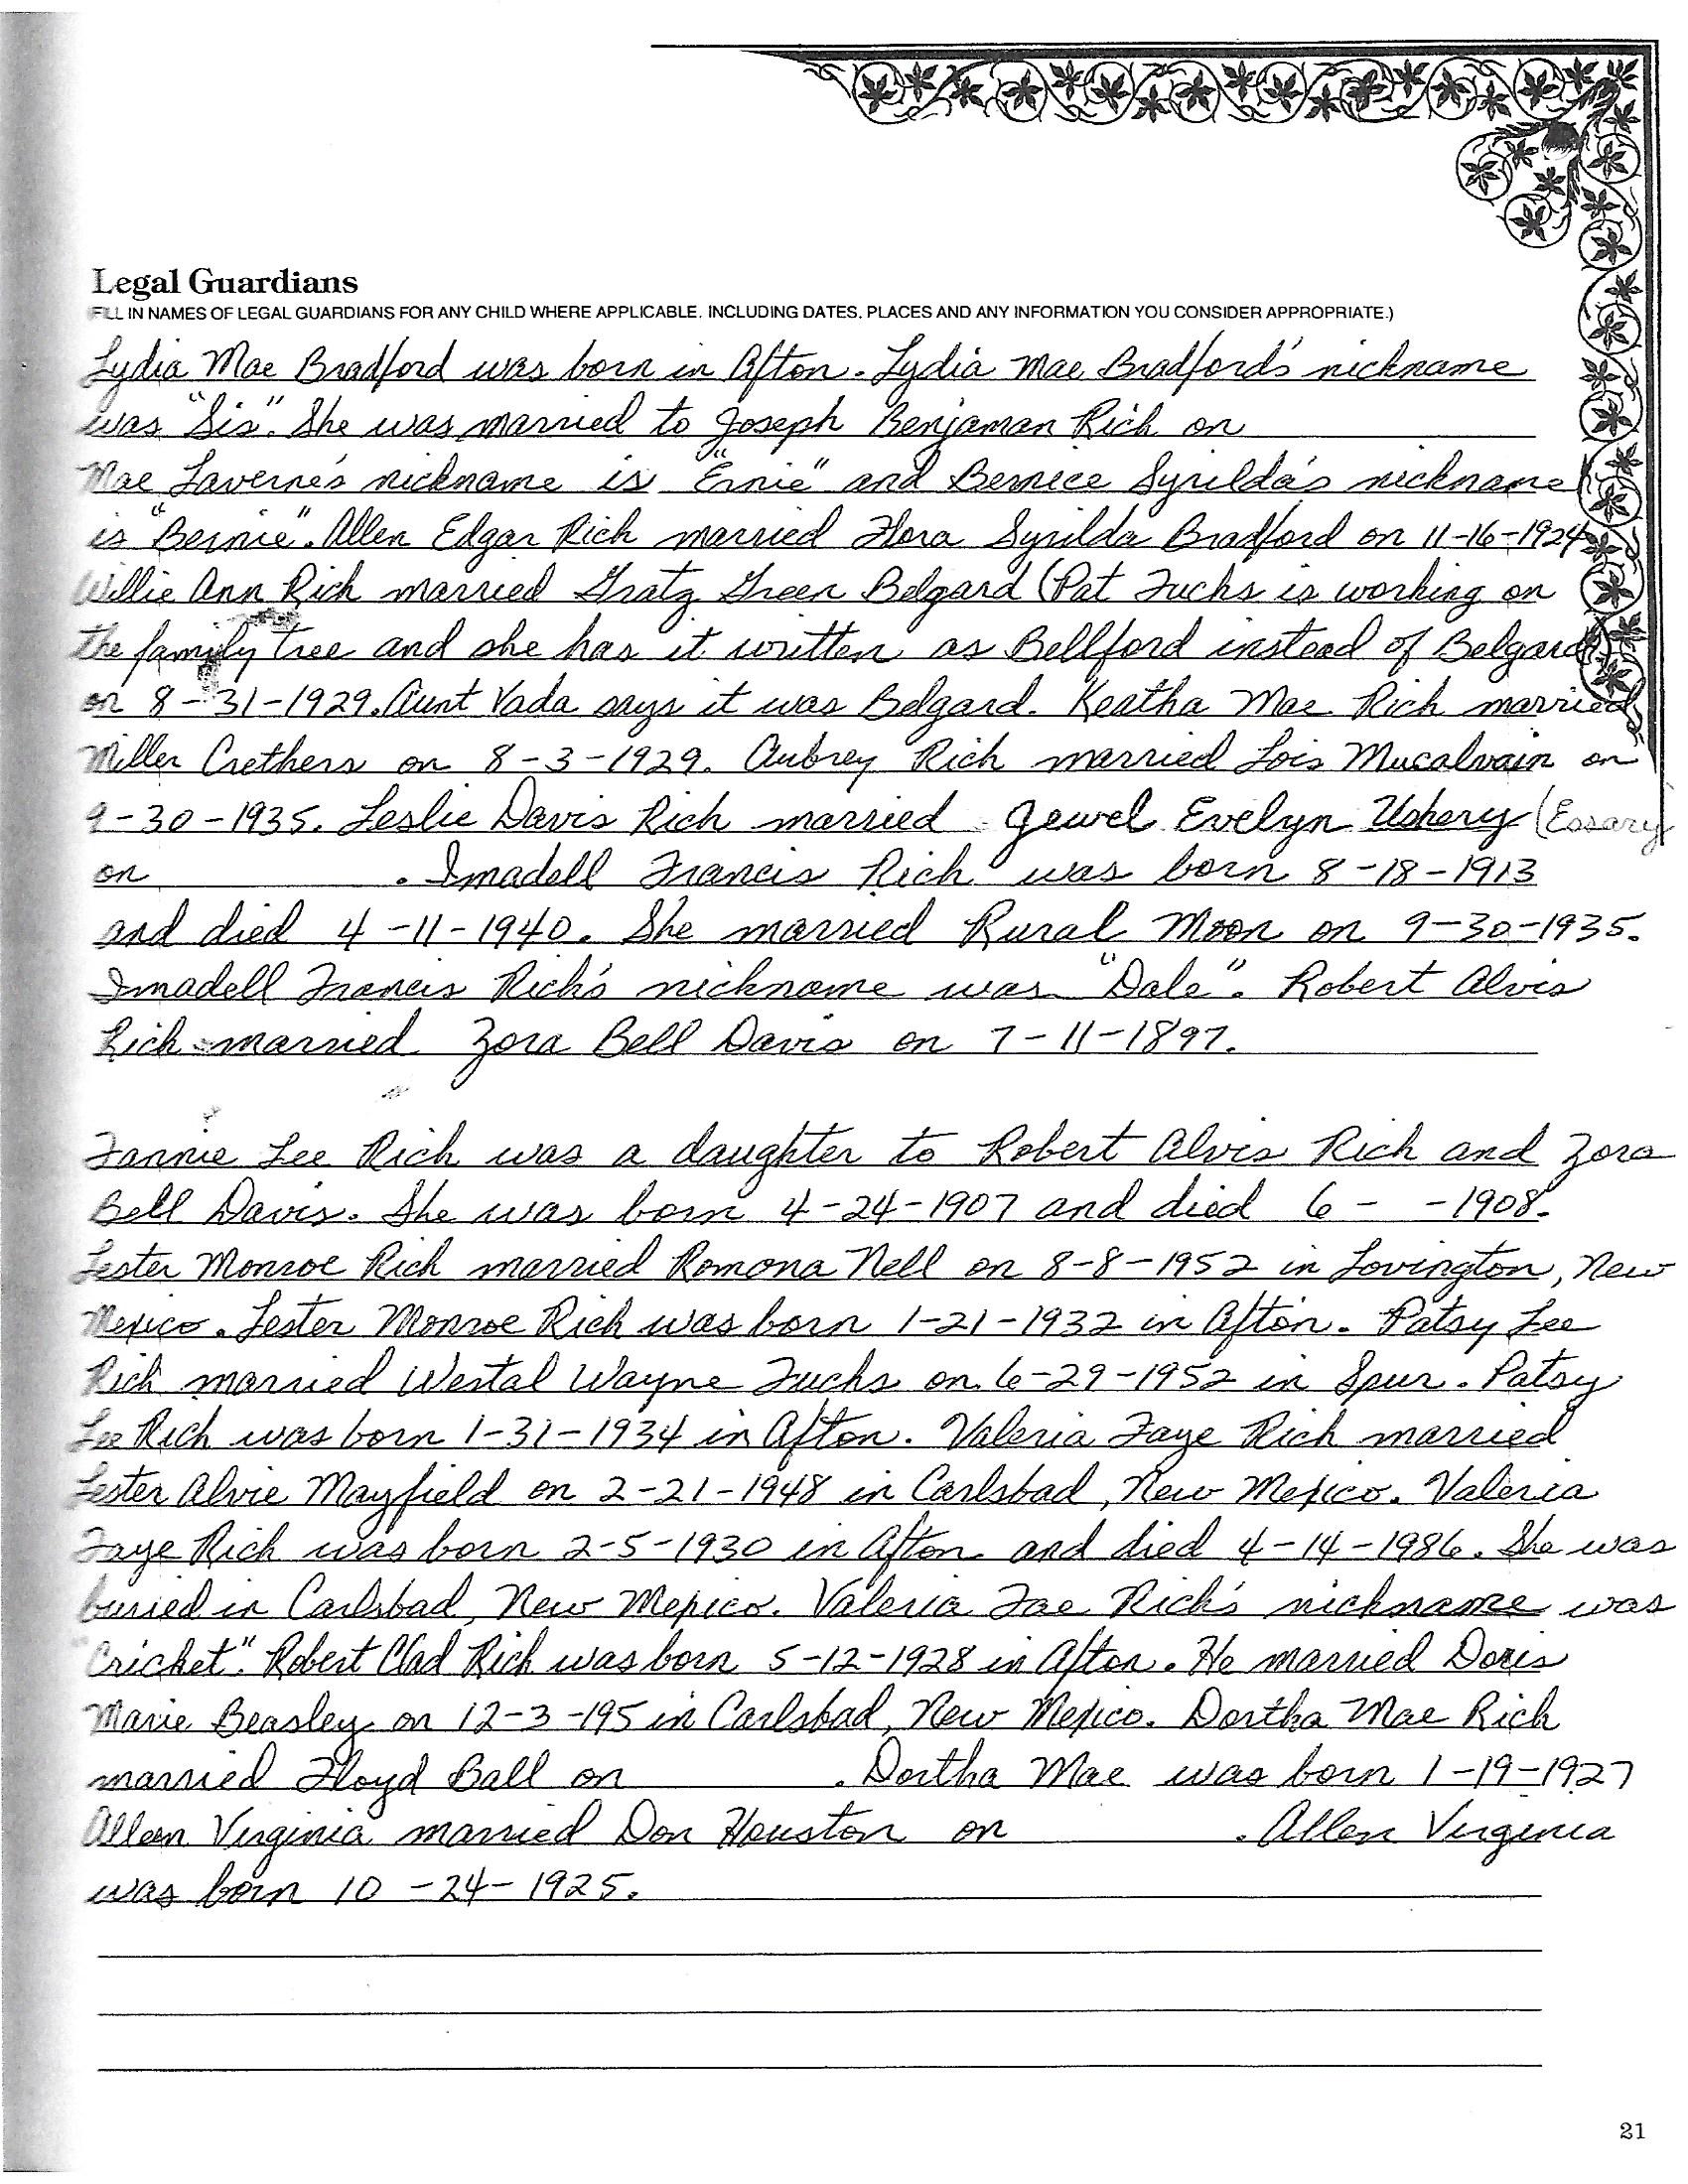 Legal Guardians
FILL IN NAMES OF LEGAL GUARDIANS FOR ANY CHILD WHERE APPLICABLE, INCLUDING DATES, PLACES AND ANY INFORMATION YOU CONSIDER APPROPRIATE.)
Lydia Mae Bradford was born in Afton. Lydia Mae Bradford's nickname
was "Sis". She was married to Joseph Benjaman Rich on
Mae Laverne's nickname is "Ernie" and Bernice Syrilda's nickname
is "Bernie". Allen Edgar Rich married Flora Syrilda Bradford on 11-16-1924
Willie Ann Rich married Gratz Green Belgard (Pat Fuchs is working on
the family tree and she has it written as Bellford instead of Belgard)
on 8-31-1929. Aunt Vada says it was Belgard. Keatha Mae Rich married
Miller Crethers on 8-3-1929. Aubrey Rich married Lois Mucalvain on
9-30-1935. Leslie Davis Rich married Jewel Evelyn Ushery (Essary
on . Imadell Francis Rich was born 8-18-1913
and died 4-11-1940. She married Rural Moon on 9-30-1935.
Imadell Francis Rich's nickname was "Dale". Robert Alvis
Rich married Zora Bell Davis on 7-11-1897.
Fannie Lee Rich was a daughter to Robert Alvis Rich and Zora
Bell Davis. She was born 4-24-1907 and died 6- -1908.
Lester Monroe Rich married Romona Nell on 8-8-1952 in Lovington, New
Mexico. Lester Monroe Rich was born 1-21-1932 in Afton. Patsy Lee
Rich married Westal Wayne Fuchs on 6-29-1952 in Spur. Patsy
Lee Rich was born 1-31-1934 in Afton. Valeria Faye Rich married
Lester Alvie Mayfield on 2-21-1948 in Carlsbad, New Mexico. Valeria
Faye Rich was born 2-5-1930 in Afton and died 4-14-1986. She was
buried in Carlsbad, New Mexico. Valeria Fae Rich's nickname was
"Cricket". Robert Clad Rich was born 5-12-1928 in Afton. He married Doris
Marie Beasley on 12-3-195 in Carlsbad, New Mexico. Dortha Mae Rich
married Floyd Ball on . Dortha Mae was born 1-19-1927
Alleen Virginia married Don Houston on . Allen Virginia
was born 10-24-1925.
21